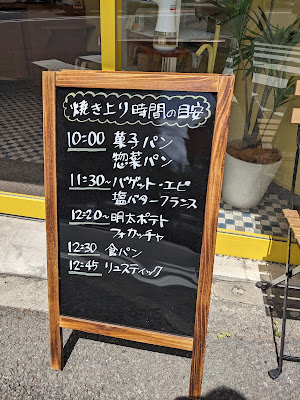 焼き上り時間の目安
10:00 菓子パン
惣菜パン
11:30~バゲット・エピ
塩バターフランス
12:20~明太ポテト
フォカッチャ
12:30 食パン
12:45 リュスティック